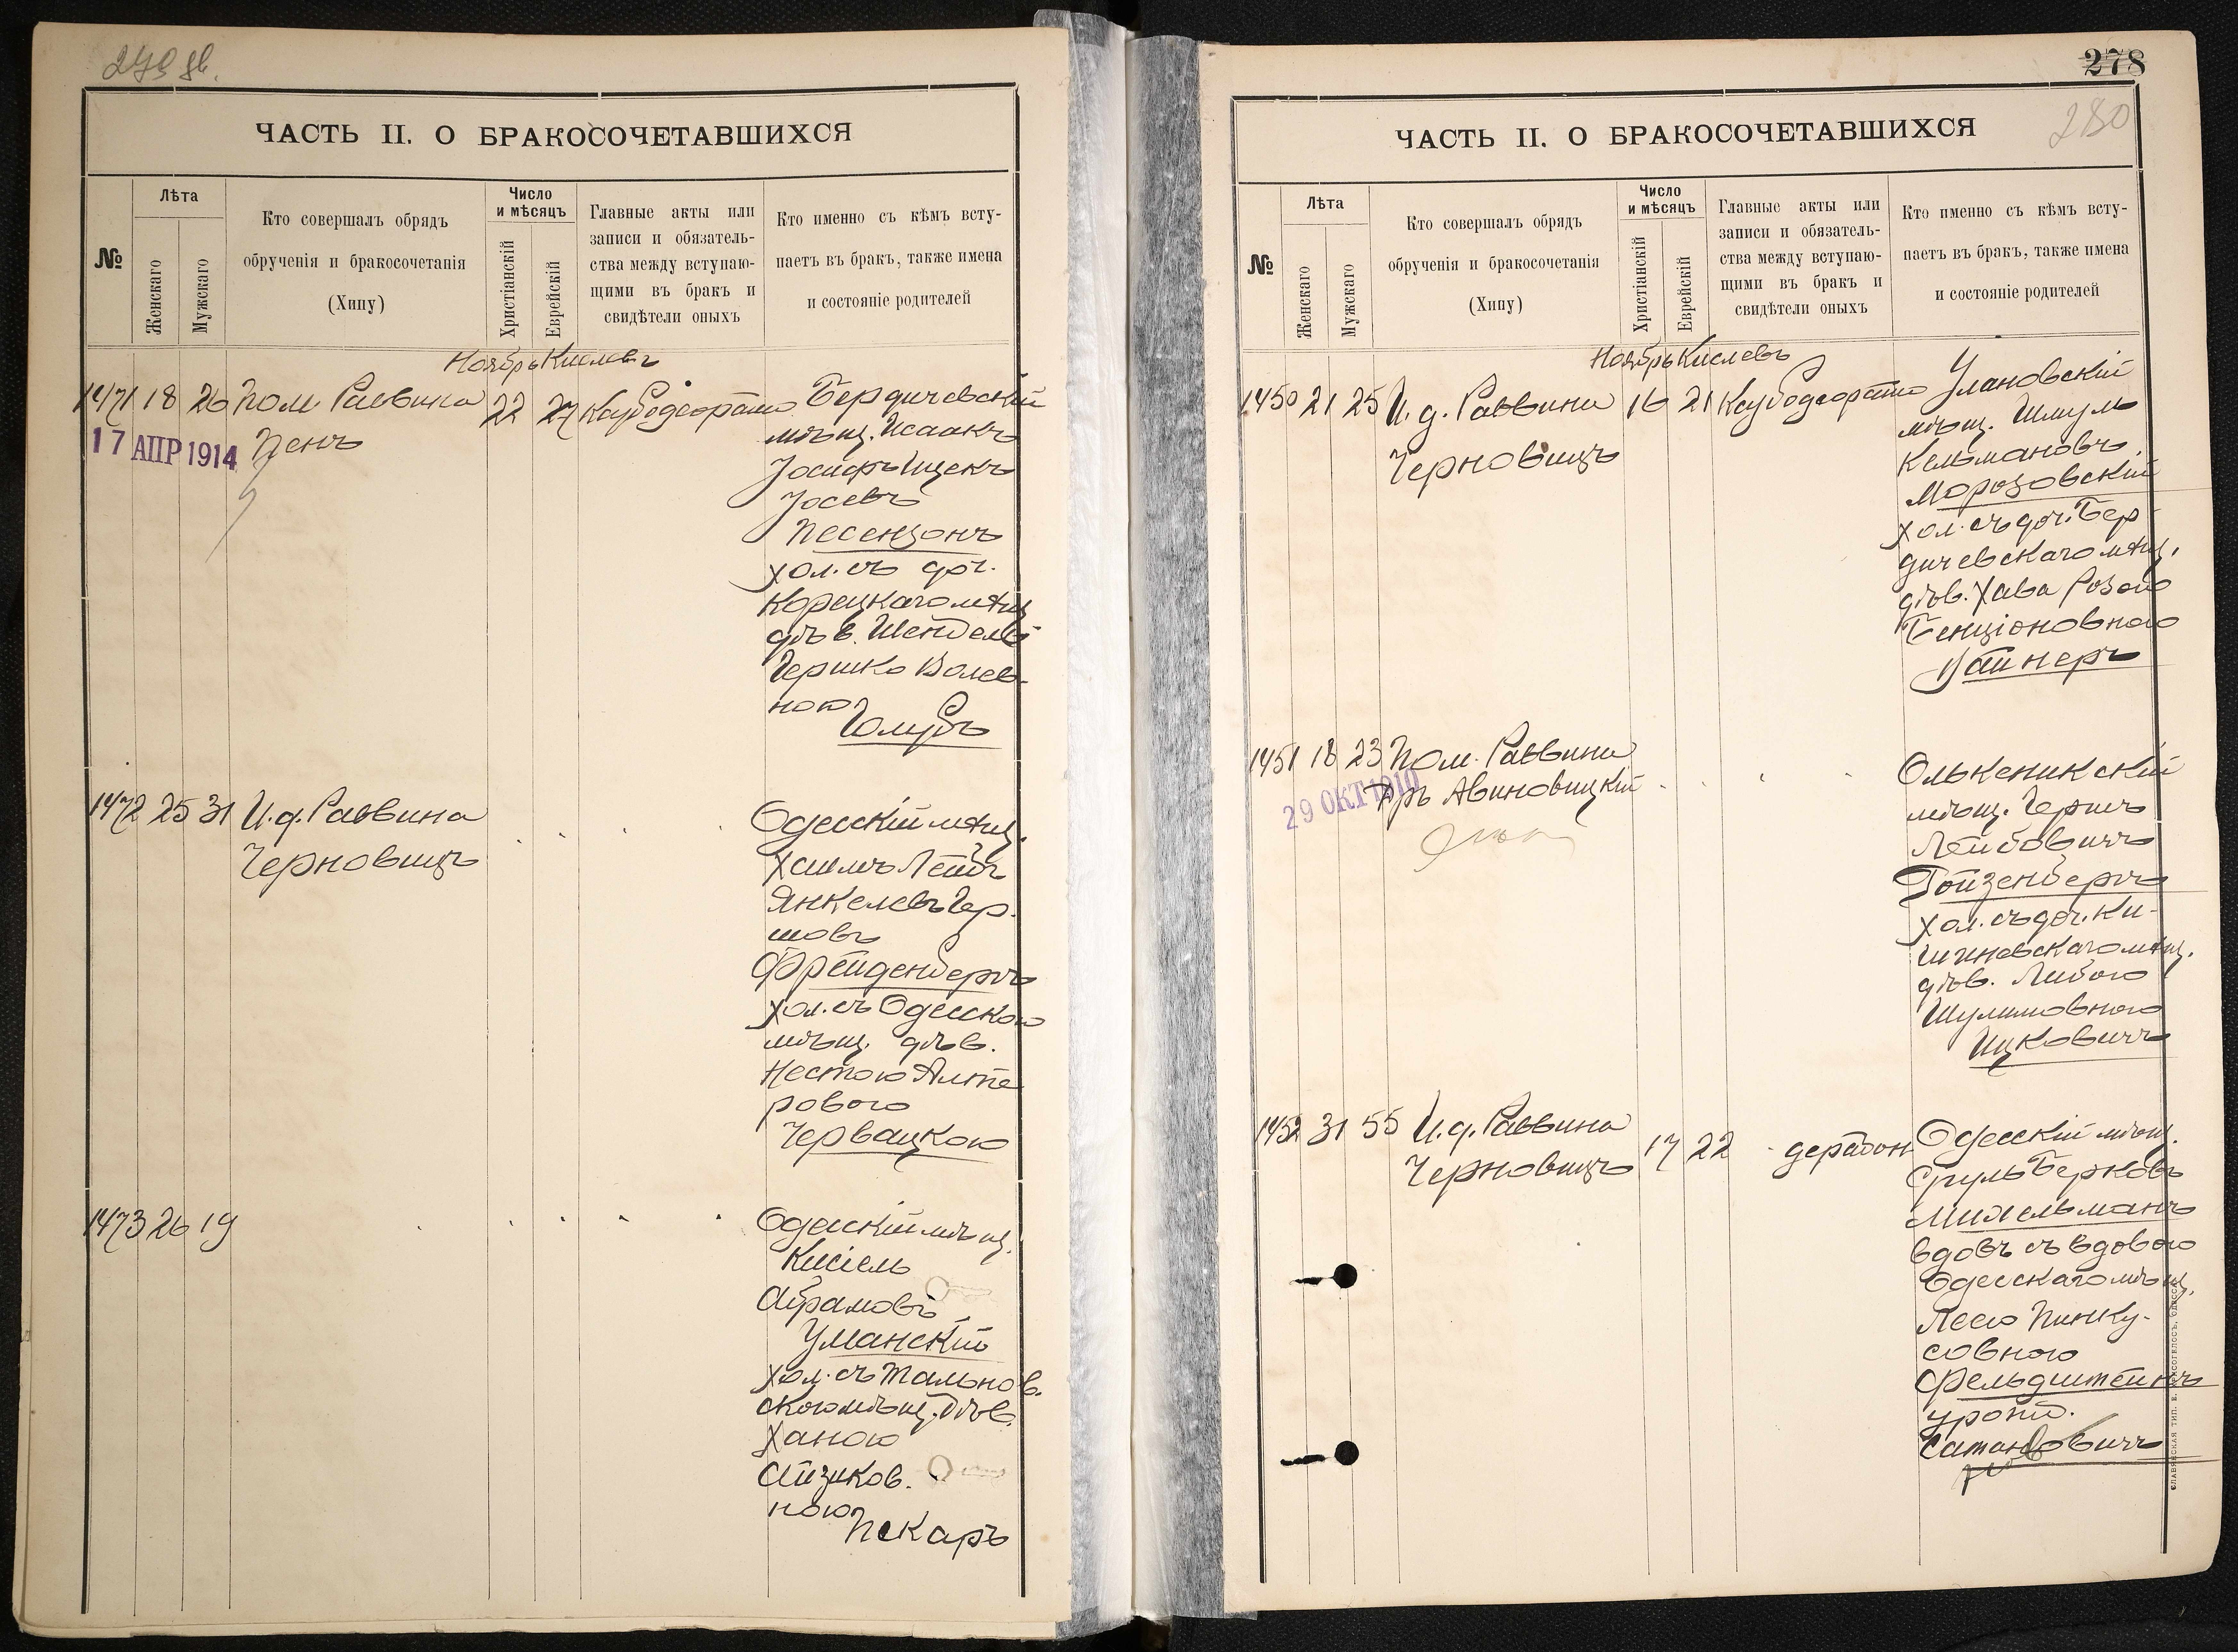 ЧАСТЬ II. О БРАКОСОЧЕТАВШИХСЯ
№
Лѣта
Женскаго
Мужскаго
Кто совершалъ обрядъ
обрученія и бракосочетанія
(Хипу)
Число
и мѣсяцъ
Христіанскій
Еврейскій
Главные акты или
записи и обязатель-
ства между вступаю-
щими въ бракъ и
свидѣтели оныхъ
Кто именно съ кѣмъ всту-
паетъ въ бракъ, также имена
и состояніе родителей
Ноябрь Кислевъ
1471 18 26 Пом. Раввина 22 27 Бердичевскій
17 АПР 1914
Пенъ
мѣщ. Исаакъ
Іосифъ Ицекъ
Іосевъ
Песензонъ
хол. съ доч.
Корецкаго мѣщ.
дѣв. Шендлей
Гершко Волев-
ною
Голубъ
1472 25 31 И. д. Раввина
Черновицъ
Одесскій мѣщ.
Хаимъ Лейбъ
Янкелевъ Гер-
шовъ
Фрейденбергъ
хол. съ Одесскою
мѣщ. дѣв.
Нестою Альте
ровою
Червацкою
1473 26 19
Одесскій мѣщ.
Кисіель
Абрамовъ
Уманскій
хол. съ Тальнов.
скою мѣщ. дѣв.
Ханою
Айзиков.
ною
Пекаръ
278
280
ЧАСТЬ II. О БРАКОСОЧЕТАВШИХСЯ
№
Лѣта
Женскаго
Мужскаго
Кто совершалъ обрядъ
обрученія и бракосочетанія
(Хипу)
Число
и мѣсяцъ
Христіанскій
Еврейскій
Главные акты или
записи и обязатель-
ства между вступаю-
щими въ бракъ и
свидѣтели оныхъ
Кто именно съ кѣмъ всту-
паетъ въ бракъ, также имена
и состояніе родителей
Ноябрь Кислевъ
1450 21 25 И. д. Раввина 16 21
Черновицъ
Улановскій
мѣщ. Шмуль
Кельмановъ
Морозовскій
хол. съ доч. Бер-
дичевскаго мѣщ.
дѣв. Хава Розою
Бенціоновною
Вайнеръ
1451 18 23 Пом. Раввина
29 ОКТ 1910
Д-ръ Авиновицкій
Олькеникскій
мѣщ. Гершъ
Лейбовичъ
Гойзенбергъ
хол. съ доч. Ки-
шиневскаго мѣщ.
дѣв. Либою
Шулимовною
Ицковичъ
1452 31 55 И. д. Раввина
Черновицъ
17 22 дерабон
Одесскій мѣщ.
Сруль Берковъ
Михельманъ
вдовъ съ вдовою
Одесскаго мѣщ.
Леею Пинку-
совною
Фельдштейнъ
урожд.
Сатановичъ